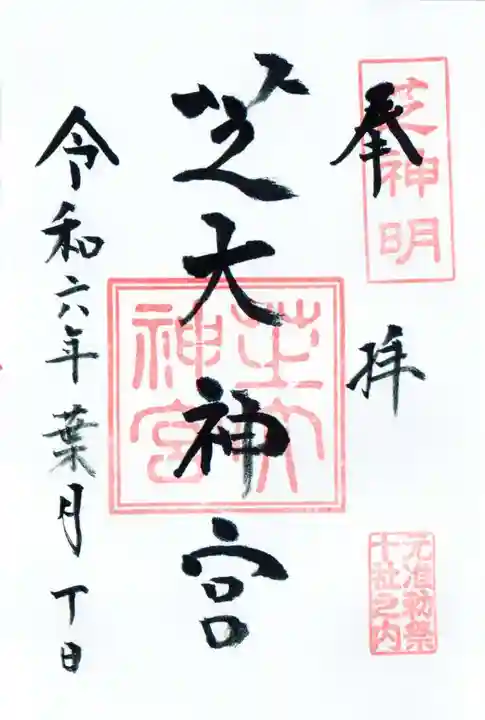 芝神明
奉拝
元准勅祭
十社之内
芝大神宮
芝大
神宮
令和六年葉月丁日